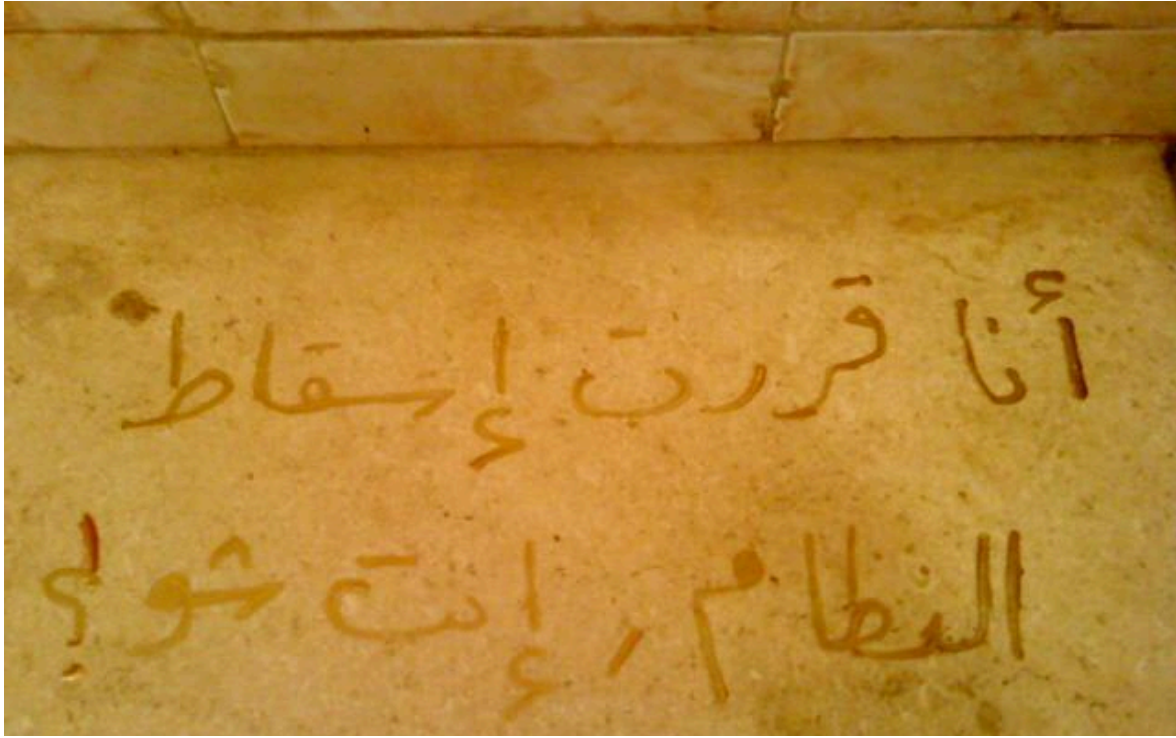 أنا قررت إسقاط
النظام, إنت شو؟!